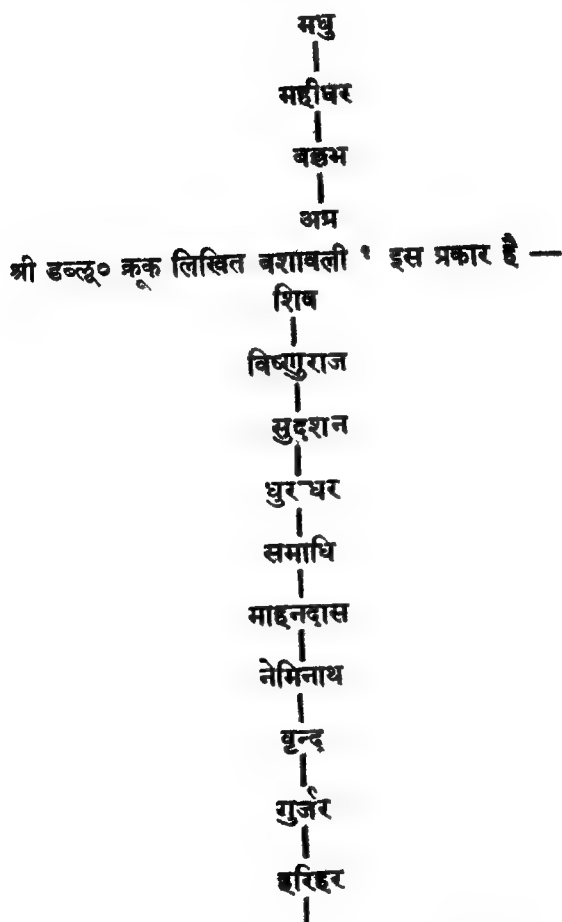 मधु
महीधर
बल्लभ
अग्र
श्री डब्लू० क्रूक लिखित वशावली १ इस प्रकार है —
शिव
विष्णुराज
सुदशन
धुर धर
समाधि
माहनदास
नेमिनाथ
वृन्द
गुर्जर
हरिहर